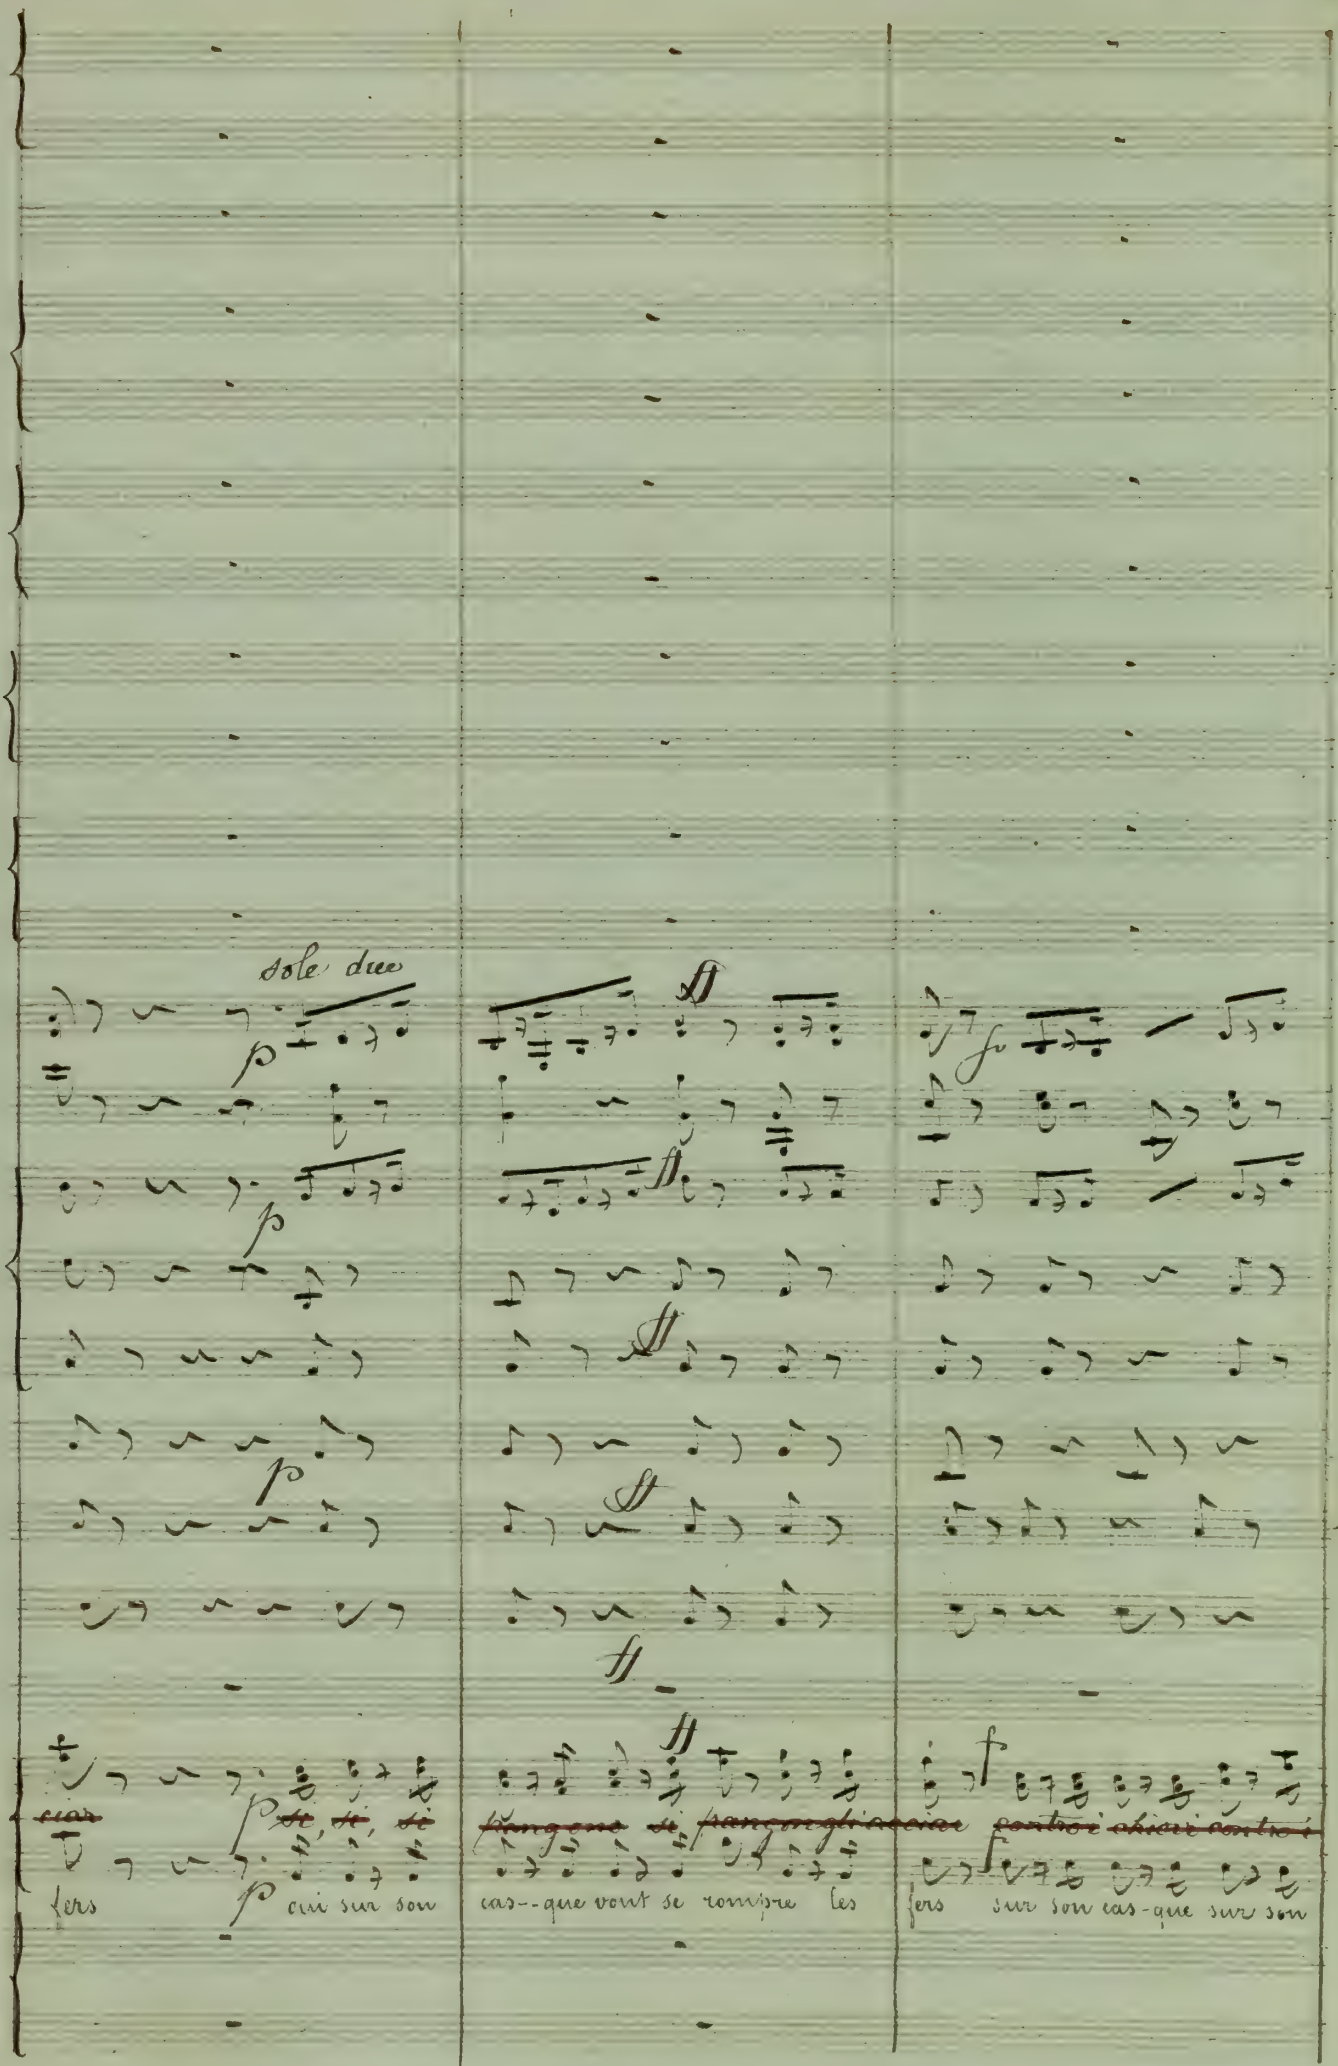 sole due
ff
p fo
ff
p
ff
p ff
ff
ff f
ciar p si, si, si frangono si frangon gli acciar contro i chiari contro i
f
fers p oui sur son cas--que vont se rompre les fers sur son cas-que sur son